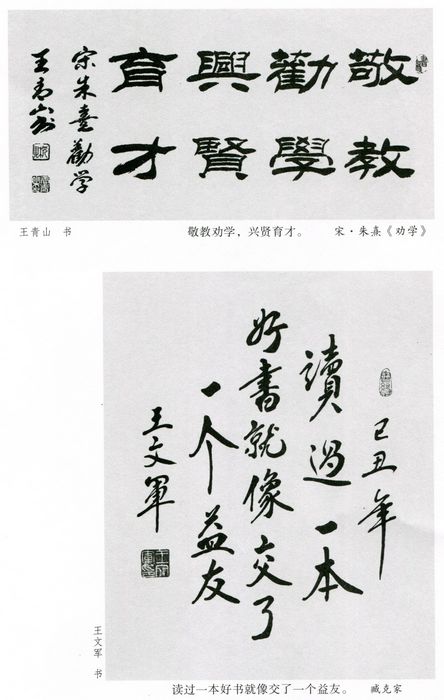 敬教
勸學
興賢
育才
宋朱熹勸学
王青山書
王青山 书
敬教劝学，兴贤育才。
宋·朱熹《劝学》
己丑年
讀過一本
好書就像交了
一个益友
王文軍
王文军 书
读过一本好书就像交了一个益友。
臧克家